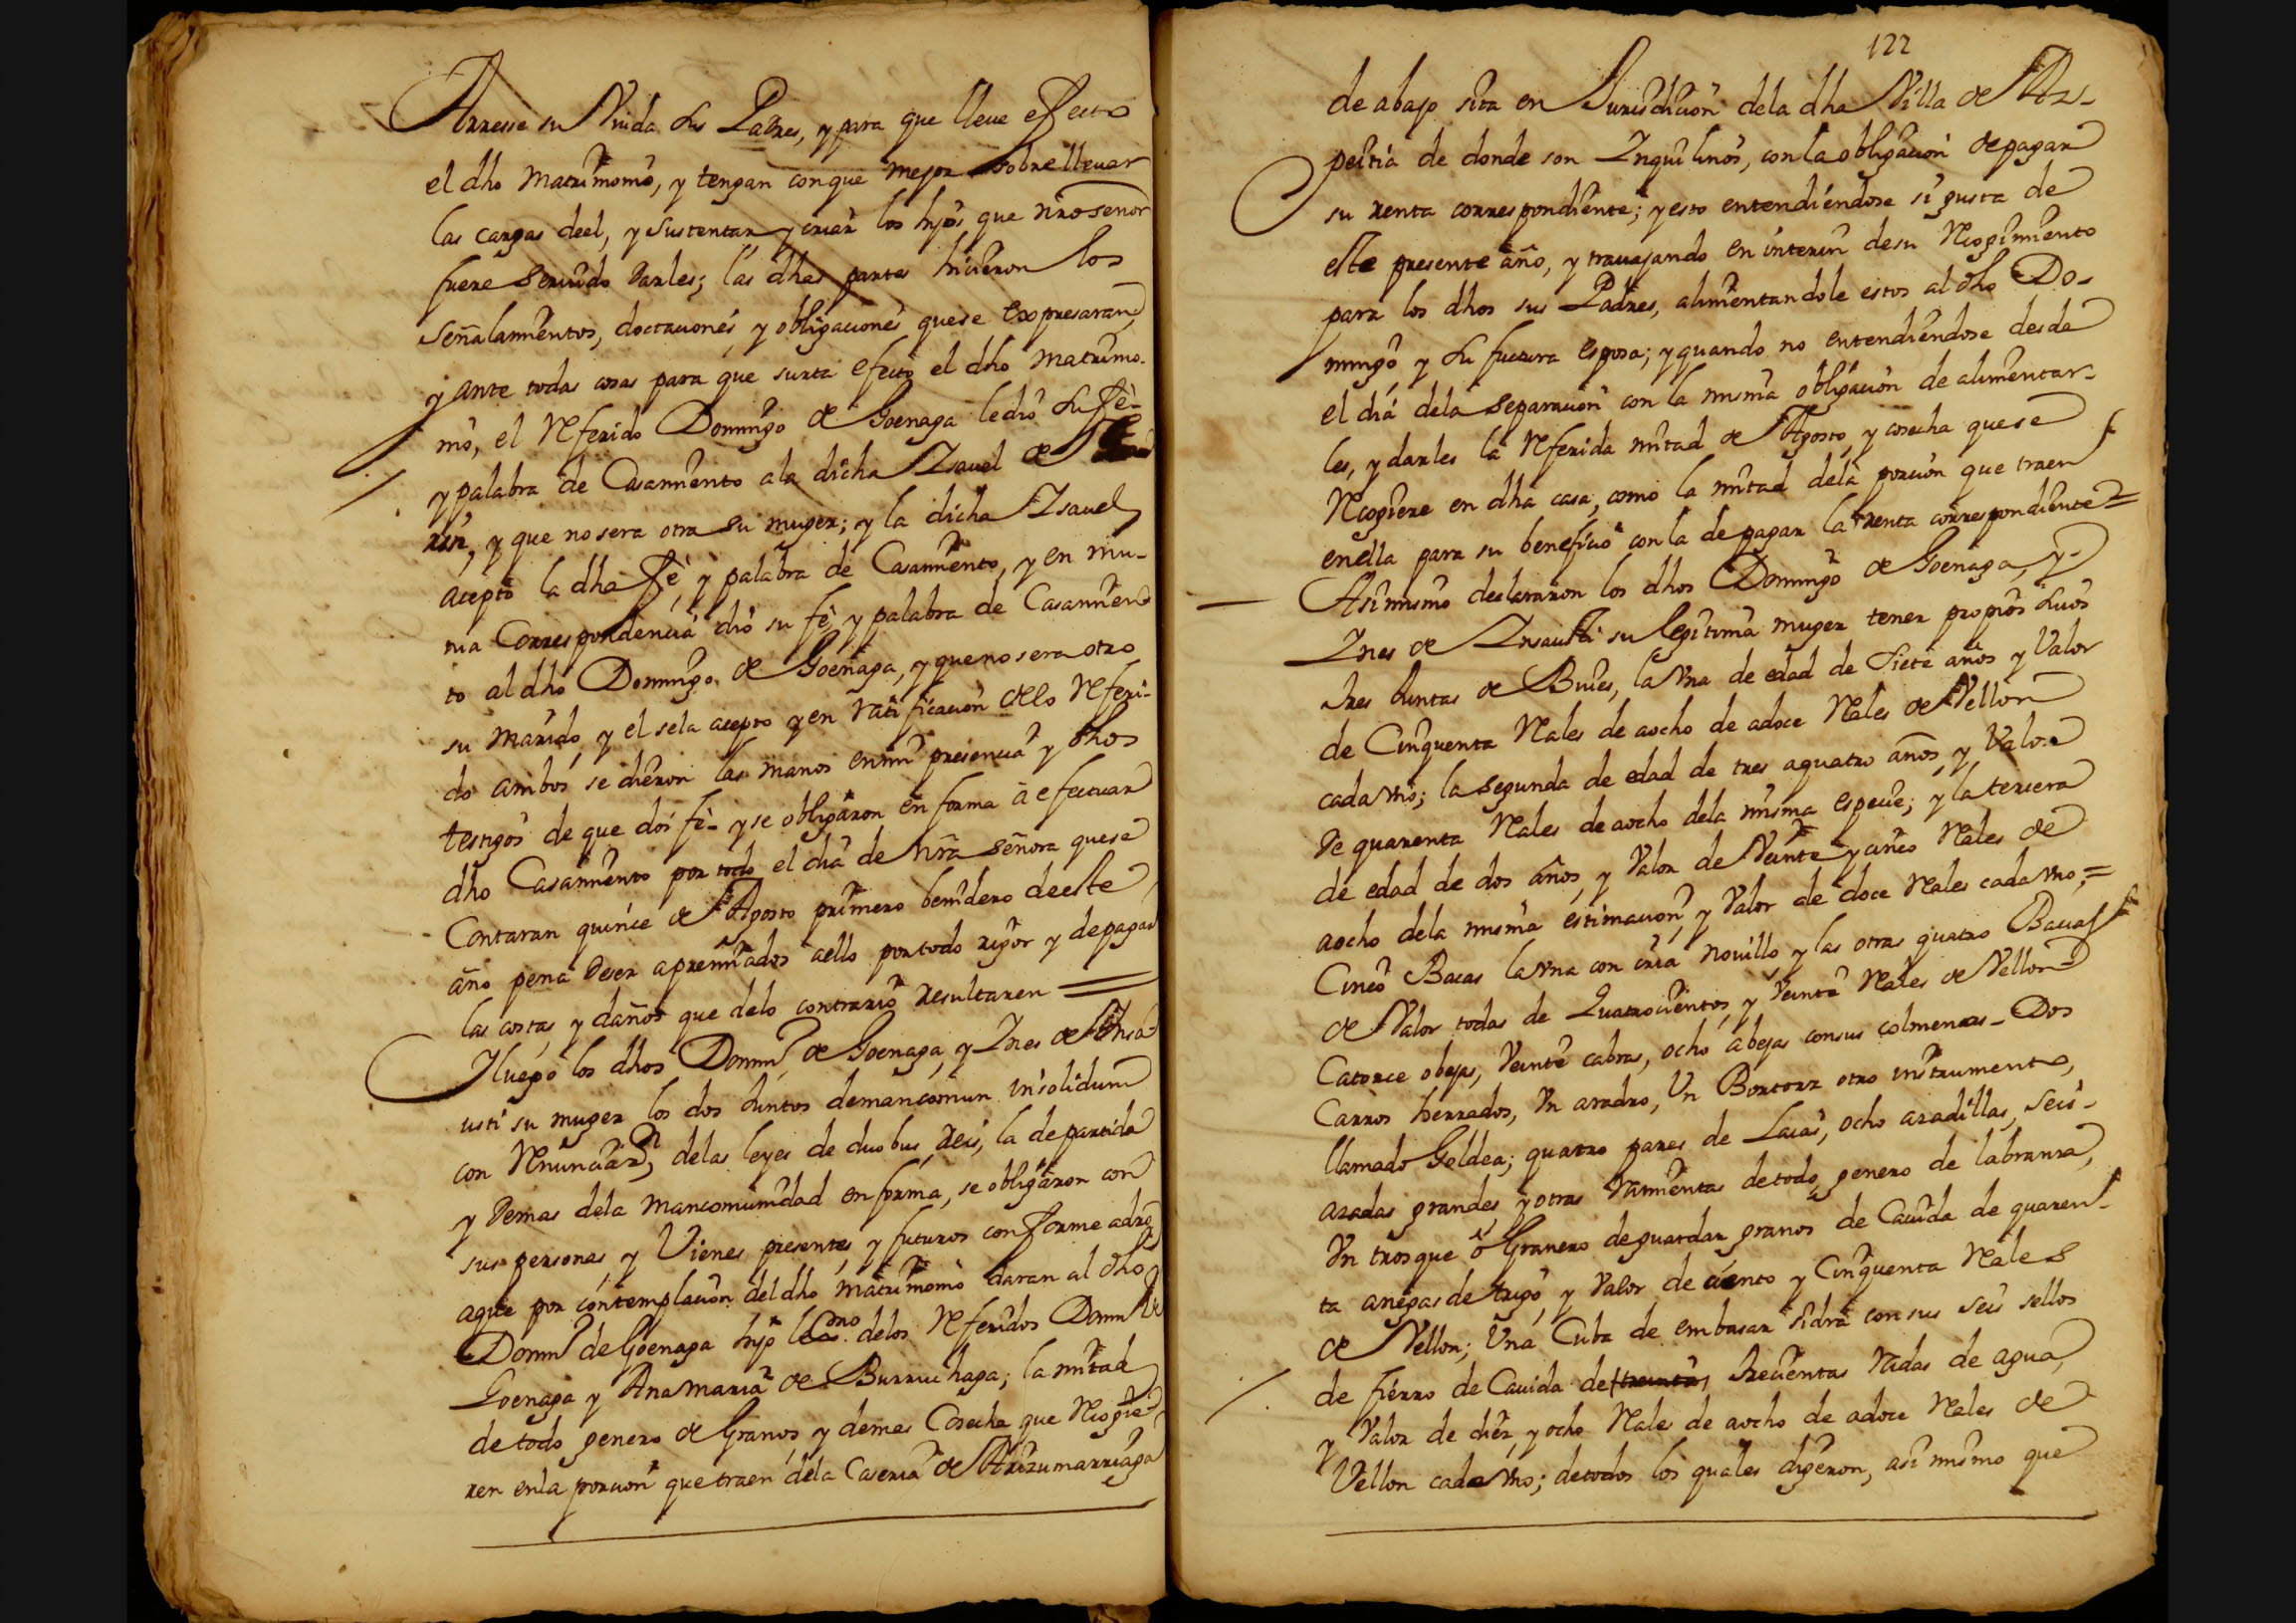 Arresse su Viuda sus Padres, y para que lleue efecto
el dho Matrimonio, y tengan conque mejor sobrelleuar
las cargas deel, y sustentar y criar los hijos que nro señor
fuere seruido darles; las dhas partes hicieron los
señalamientos, doctaciones, y obligaciones quese expresaran,
y ante todas cosas para que surta efecto el dho matrimo-
nio, el Referido Domingo de Goenaga ledio su fè-
y palabra de Casamiento ala dicha Isauel de
y que no sera otra su muger; y la dicha Isauel
acepto la dha fè, y palabra de Casamiento, y en mu-
tua Correspondencia dio su fè, y palabra de Casamien
to al dho Domingo de Goenaga, y que no sera otro
su marido, y el sela acepto y en ratificacion dello Referi-
do ambos se dieron las manos enmi presencia y dhos
testigos de que doi fè- y se obligaron en forma à efectuar
dho Casamiento por todo el dia de nra señora quese
Contaran quince de Agosto primero benidero deeste
año pena deser apremiados aello por todo rigor y depagar
las costas, y daños que delo contrario resultaren =
Yluego los dhos Domin.º de Goenaga, y Ines de Insa-
usti su muger los dos Juntos demancomun insolidum
con Renunciaz.n delas leyes de duobus reis, la departida
y demas dela mancomunidad en forma, se obligaron con
sus personas, y Vienes presentes, y futuros conforme adro
aque por contemplacion deldho matrimonio daran al dho
Domin.º de Goenaga hijo legmo. delos Referidos Domin.º de
Goenaga y Ana Maria de Burruchaga; la mitad
detodo genero de Granos y demas Cosecha que Recogie-
ren enla porcion que traen dela Caseria de Arizumarriaga
122
de abajo sita en Jurisdicion dela dha Villa de Az-
peitia de donde son Inquilinos, conla obligacion depagar
su renta correspondiente; y esto entendiendose si gusta de
este presente año, y trauajando en interin desu Recogimiento
para los dhos sus Padres, alimentandole estos al dho Do-
mingo y su futura esposa; y quando no entendiendose desde
el dia dela separacion con la misma obligacion de alimentar-
les, y darles la Referida mitad de Agosto, y cosecha quese
Recogiere en dha casa, como la mitad dela porcion que traen
enella para su beneficio conla de pagar la renta correspondiente =
Asimismo declararon los dhos Domingo de Goenaga, y-
Ines de Insausti su legitima muger tener propios suios
tres Juntas de Buies, la Vna de edad de siete años y Valor
de Cinquenta Reales de aocho de adoce Reales de Vellon
cada Vno; la segunda de edad de tres aquatro años, y Valor
de quarenta Reales de aocho dela misma especie; y la tercera
de edad de dos años, y Valor de Veinte y cinco Reales de
aocho dela misma estimacion, y Valor de doce Reales cada Vno; =
Cinco Bacas la Vna con cria nouillo y las otras quatro Bacas
de Valor todas de Quatrocientos, y Veinte Reales de Vellon =
Catorce obejas, Veinte cabras, ocho abejas consus colmenas- Dos
Carros herrados, Vn aradro, Vn Bortorz otro instrumento,
llamado Goldea; quatro pares de Laias, ocho azadillas, seis-
azadas grandes, y otras ramientas detodo genero de labranza,
Vn trosque ô Granero deguardar granos de Cauida de quaren-
ta anegas de trigo, y Valor de ciento y Cinquenta Reales
de Vellon; Vna Cuba de embasar sidra con sus seis sellos
de fierro de Cauida de trecientas Vadas de agua,
y Valor de diez, y ocho Reales de aocho de adoce Reales de
Vellon cada Vno; detodos los quales digeron, asi mismo que